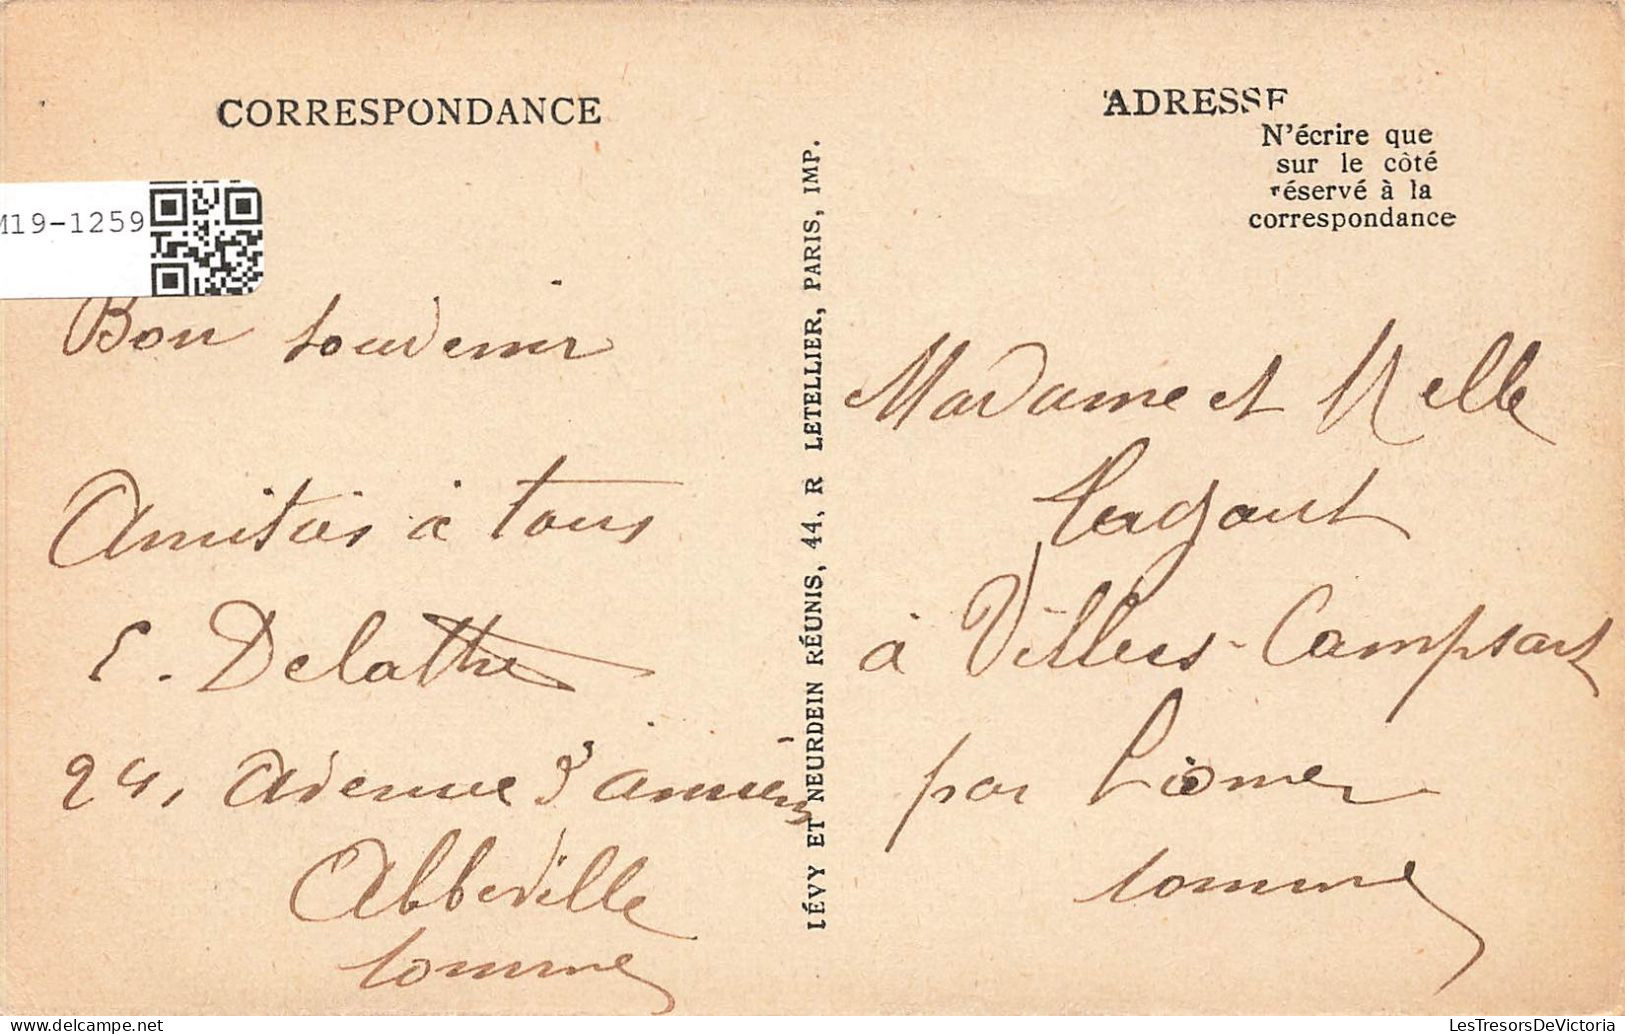 CORRESPONDANCE
M19-1259
Bon souvenir
Amitiés à tous
E. Delattre
24, Avenue d'amiens
Abbeville
Somme
LÉVY ET NEURDEIN RÉUNIS, 44, R LETELLIER, PARIS, IMP.
ADRESSE
N'écrire que
sur le côté
réservé à la
correspondance
Madame et Melle
à Villers-Campsart
par Liomer
Somme
LesTresorsDeVictoria
www.delcampe.net